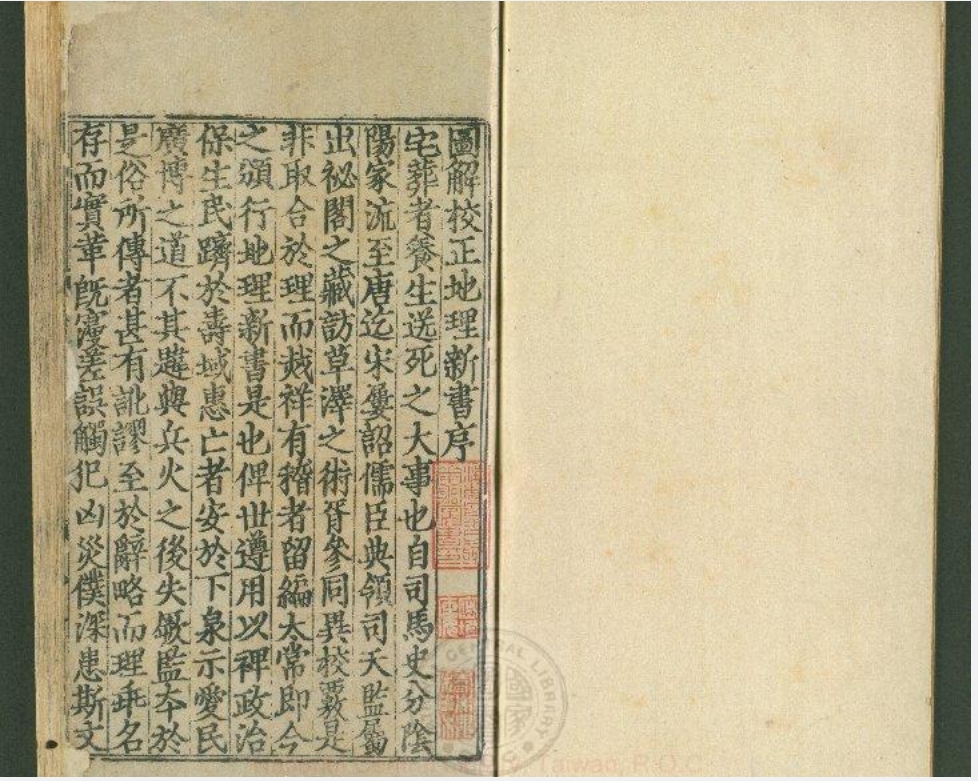 圖解校正地理新書序
宅葬者養生送死之大事也自司馬史分陰
陽家流至唐迄宋屢詔儒臣典領司天監屬
出祕閣之藏訪草澤之術胥參同異校覈是
非取合於理而災祥有稽者留編太常即今
之頒行地理新書是也俾世遵用以裨政治
保生民躋於壽域惠亡者安於下泉示愛民
廣博之道不其韙歟兵火之後失厥監本於
是俗所傳者甚有訛謬至於辭略而理乖名
存而實革既寖差誤觸犯凶災僕深患斯文
CENTRAL LIBRARY
國家
Taiwan, R.O.C.